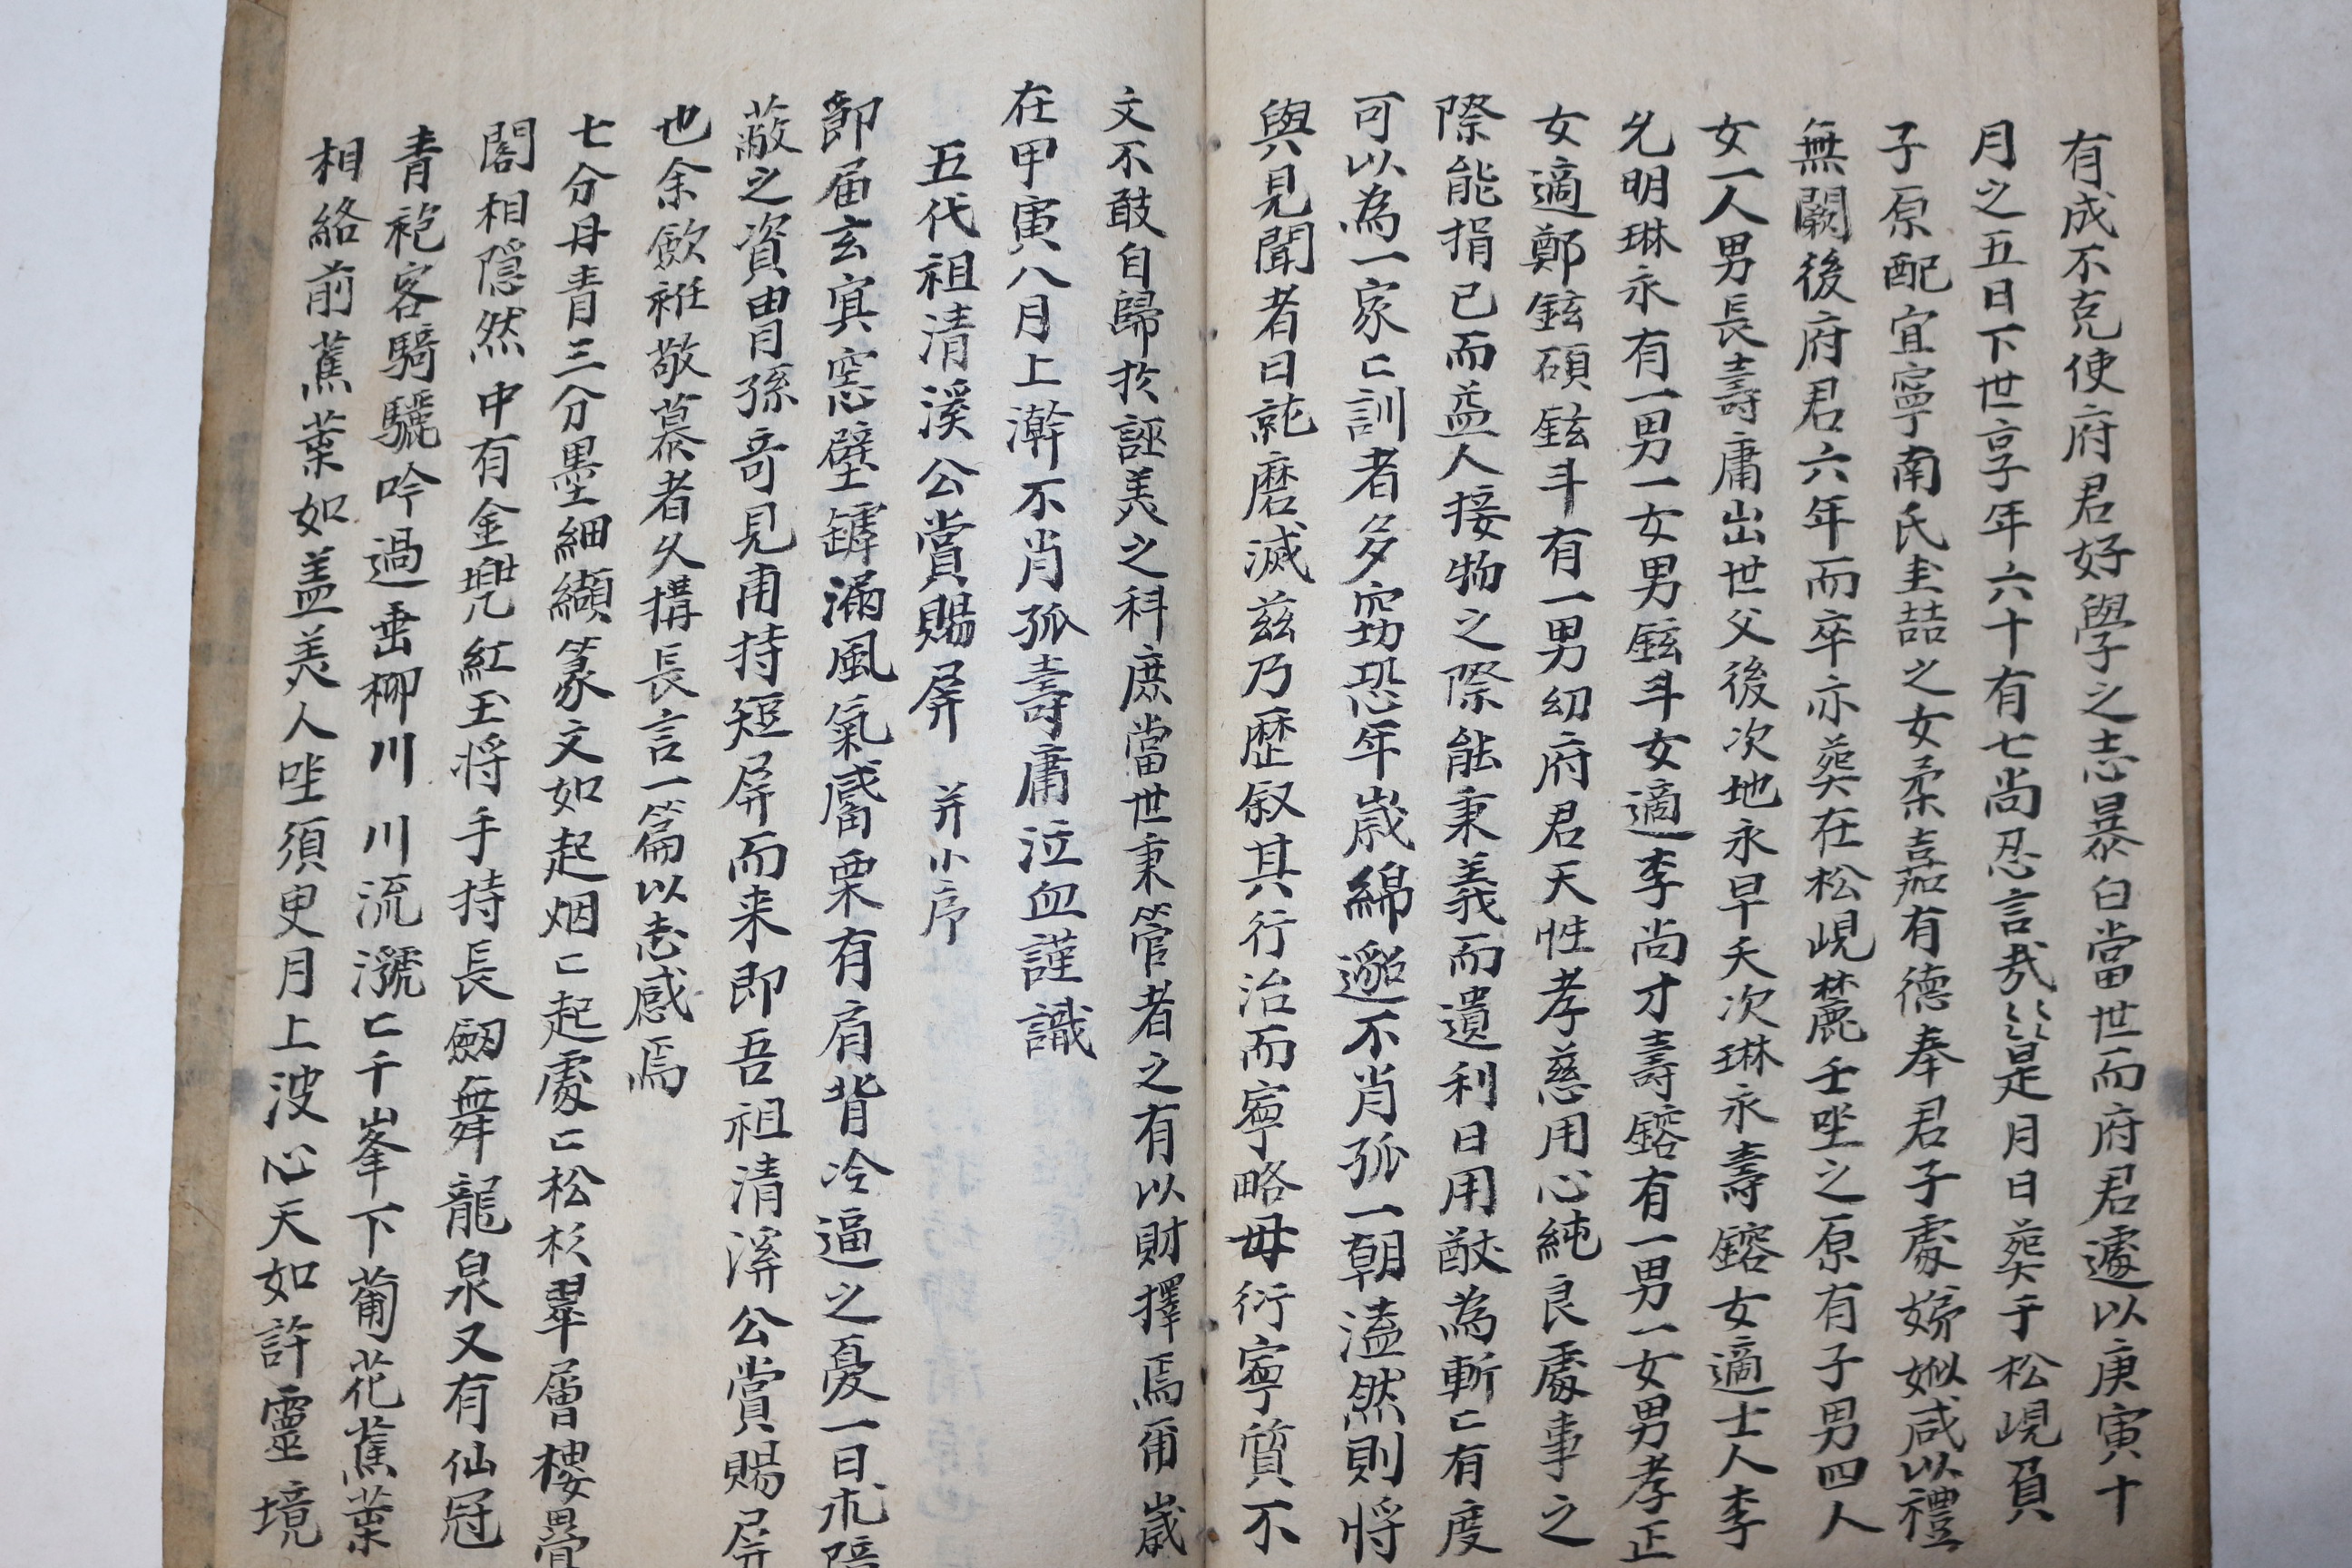 有成不克使府君好學之志暴白當世而府君遽以庚寅十
月之五日下世享年六十有七尚忍言哉是月日葬于松峴負
子原配宜寧南氏圭喆之女柔嘉有德奉君子處娣姒咸以禮
無闕後府君六年而卒亦葬在松峴麓壬坐之原有子男四人
女一人男長壽庸出世父後次地永早夭次琳永壽鎔女適士人李
允明琳永有一男一女男鉉斗女適李尚才壽鎔有一男一女男孝正
女適鄭鉉碩鉉斗有一男幼府君天性孝慈用心純良處事之
際能捐己而益人接物之際能秉義而遺利日用猷為斬〻有度
可以為一家〻訓者多窃恐年歲綿邈不肖孤一朝溘然則將
與見聞者日就磨滅玆乃歷叙其行治而寧略毋衍寧質不
文不敢自歸於誣美之科庶當世秉管者之有以財擇焉甭歲
在甲寅八月上澣不肖孤壽庸泣血謹識
五代祖清溪公賞賜屏 并小序
節届玄冥窓壁罅漏風氣觱栗有肩背冷逼之憂一日求障
蔽之資胄孫奇見甫持短屏而来即吾祖清溪公賞賜屏
也余斂袵敬慕者久搆長言一篇以志感焉
七分丹青三分墨細纈篆文如起烟〻起處〻松杉翠層樓疊
閣相隱然中有金兜紅玉將手持長劒舞龍泉又有仙冠
青袍客騎驪吟過垂柳川川流㶁〻千峯下葡花蕉葉
相絡前蕉葉如盖美人坐須臾月上波心天如許靈境